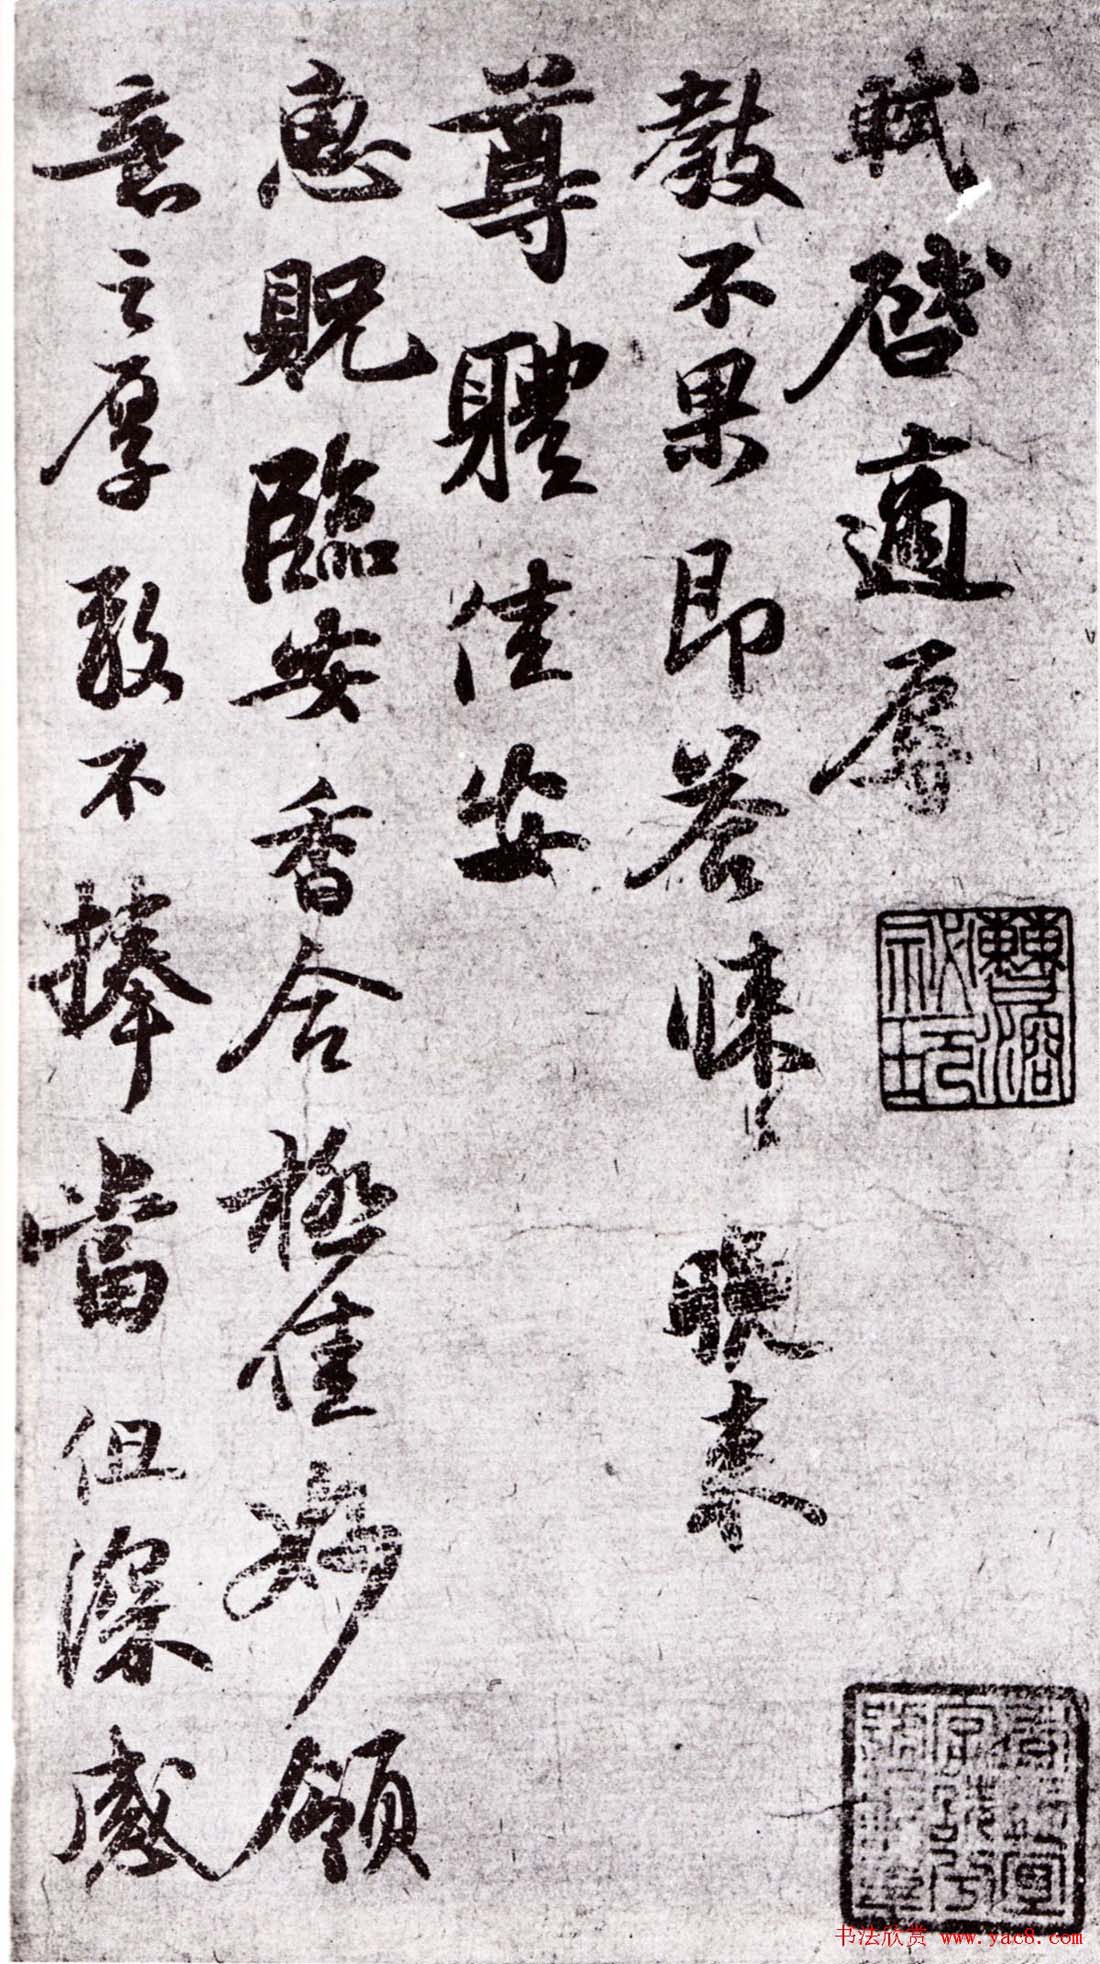 軾啓適辱
教不果即答悚悚晚來
尊體佳安
惠貺臨安香合極佳妙領
意之厚敢不捧當但深感
书法欣赏 www.yac8.com